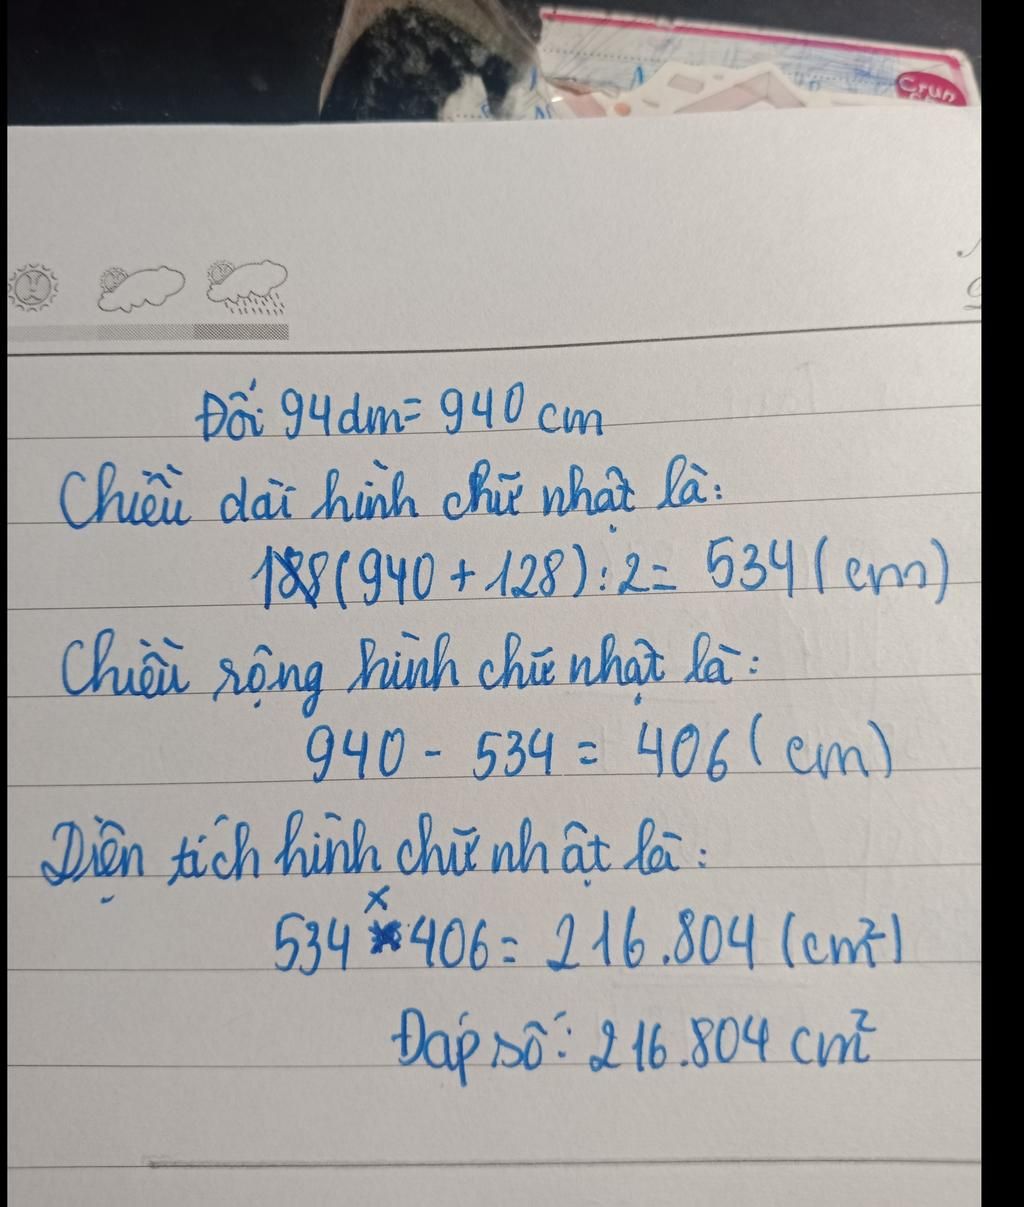 Crun
Đổi 94dm = 940 cm
Chiều dài hình chữ nhật là:
(940 + 128) : 2 = 534 (cm)
Chiều rộng hình chữ nhật là:
940 - 534 = 406 (cm)
Diện tích hình chữ nhật là:
534 x 406 = 216.804 (cm²)
Đáp số: 216.804 cm²